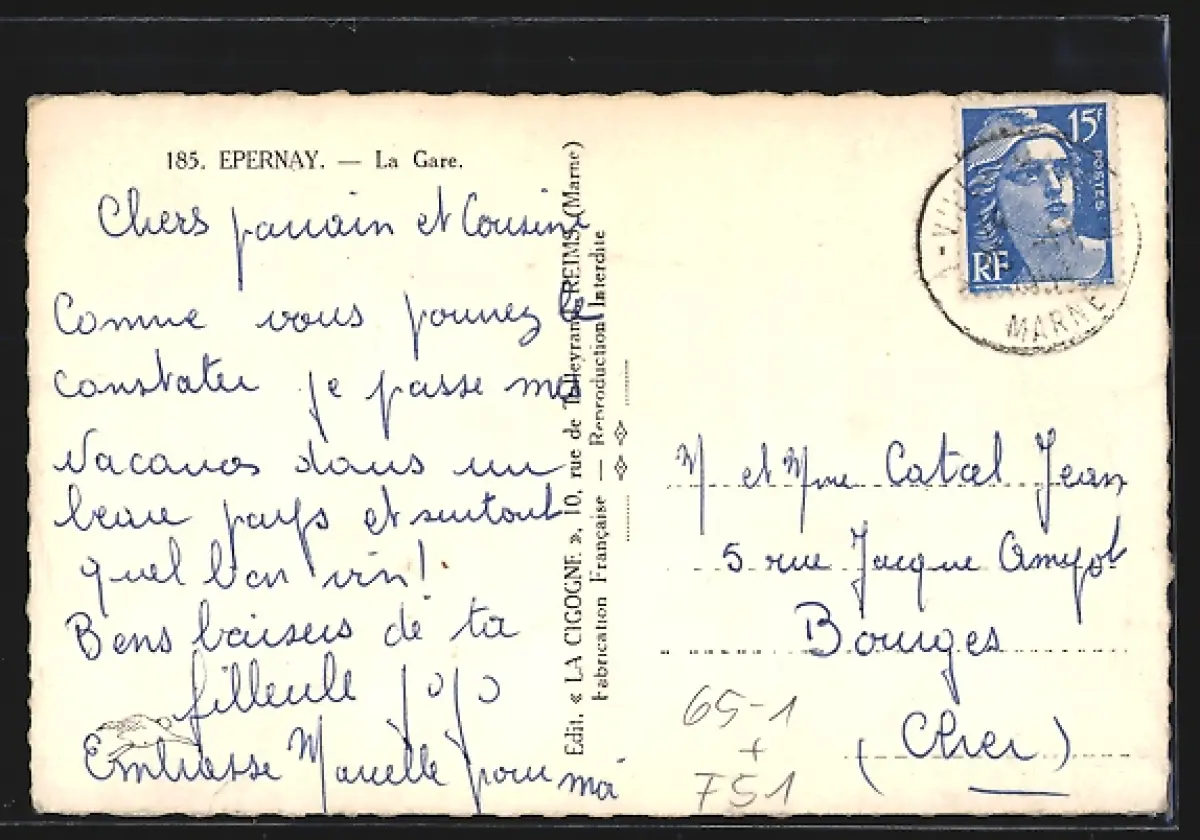 185. EPERNAY. — La Gare.
Chers parrain et Cousine
Comme vous pouvez le
constater je passe mes
vacances dans un
beau pays et surtout
quel bon vin!
Bons baisers de ta
filleule jojo
Embrasse Marcelle pour moi
Edit. « LA CIGOGNE », 10, rue de Talleyrand, REIMS (Marne)
Fabrication Française — Reproduction Interdite
15F
POSTES
RF
MARNE
M et Mme Catal Jean
5 rue Jacque Amyot
Bourges
(Cher)
65-1
+
751